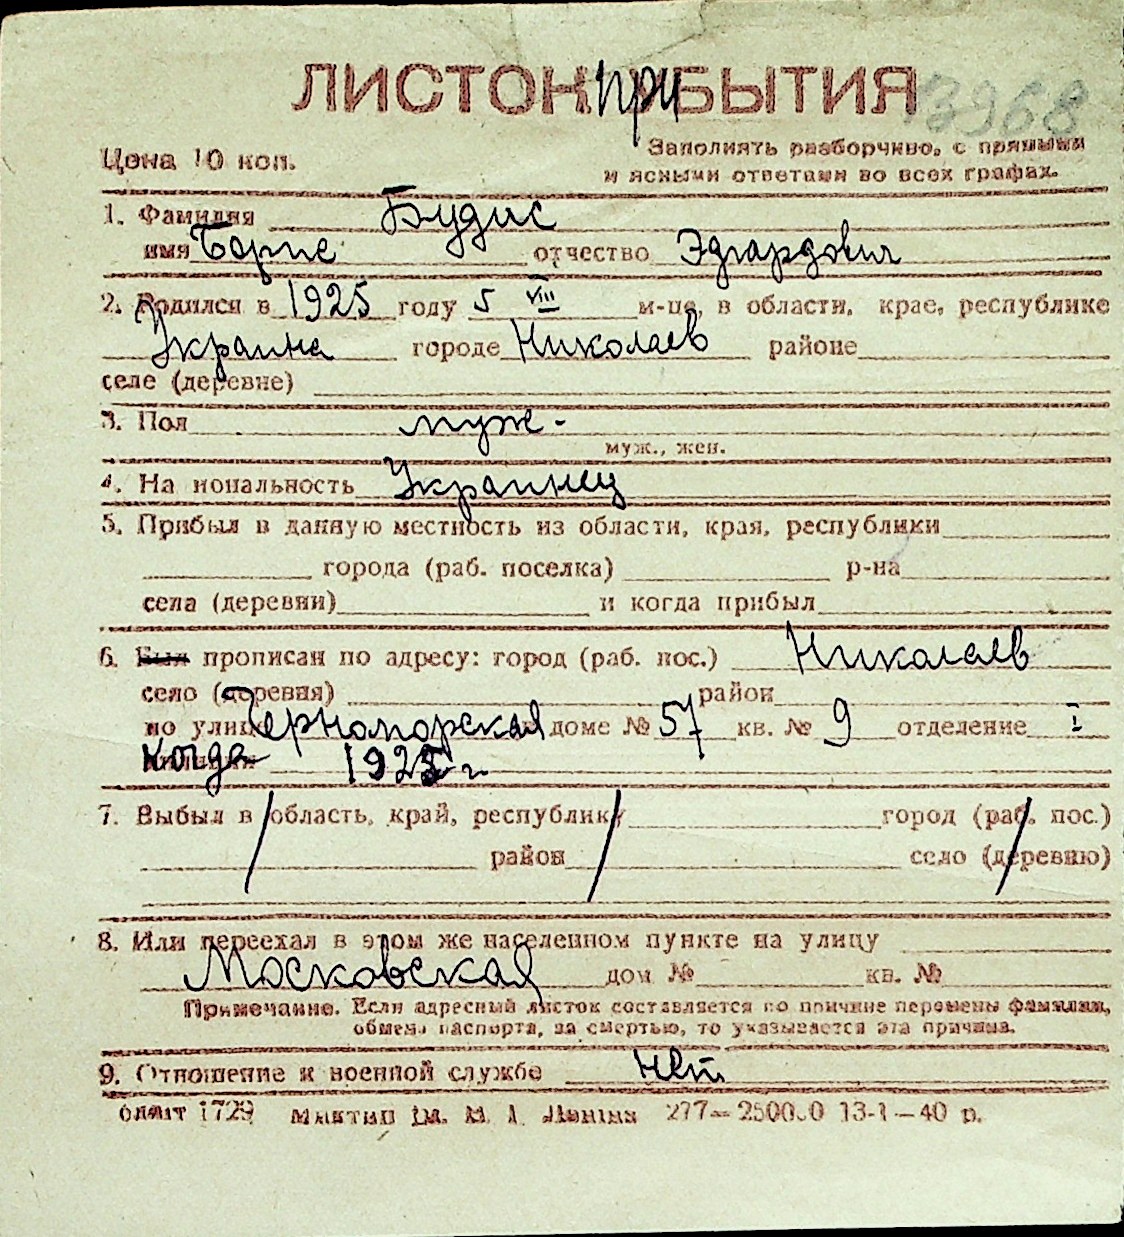 ЛИСТОК ПРИБЫТИЯ 13968
Цена 10 коп.
Заполнять разборчиво, с прямыми
и ясными ответами во всех графах.
1. Фамилия Будис
имя Борис отчество Эдгардович
2. Родился в 1925 году 5 VIII м-це, в области, крае, республике
Украина городе Николаев районе
селе (деревне)
3. Пол муж-
муж., жен.
4. Национальность Украинец
5. Прибыл в данную местность из области, края, республики
города (раб. поселка) р-на
села (деревни) и когда прибыл
6. Был прописан по адресу: город (раб. пос.) Николаев
село (деревня) район
по улице Черноморская доме № 57 кв. № 9 отделение I
когда 1925 г
7. Выбыл в область, край, республику город (раб. пос.)
район село (деревню)
8. Или переехал в этом же населенном пункте на улицу
Московская дом № кв. №
Примечание. Если адресный листок составляется по причине перемены фамилии,
обмена паспорта, за смертью, то указывается эта причина.
9. Отношение к военной службе нет
1729 им. В. І. Леніна 277—250000 13-1—40 р.